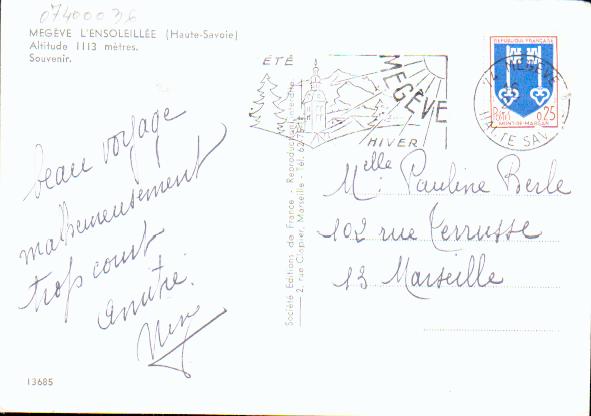 07400036
MEGÈVE L'ENSOLEILLÉE (Haute-Savoie)
Altitude 1113 mètres.
Souvenir.
beau voyage
malheureusement
trop court
amitié.
13685
Société Editions de France - Reproduction interdite
2, rue Clapier, Marseille - Tél. 62
ÉTÉ
MEGÈVE
HIVER
REPUBLIQUE FRANÇAISE
0,25
MONT-DE-MARSAN
MEGÈVE
HTE SAVOIE
Melle Pauline Berle
102 rue Terrusse
13 Marseille